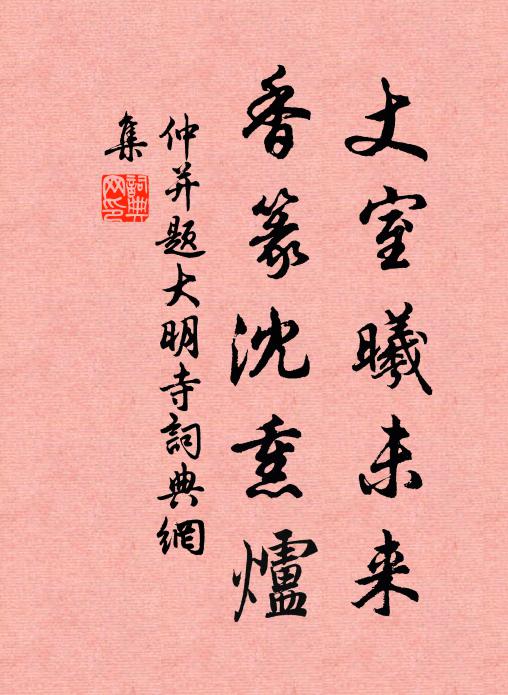 丈室曦未来
香篆沈熏爐
仲并題大明寺詞典網
集
詞典网印